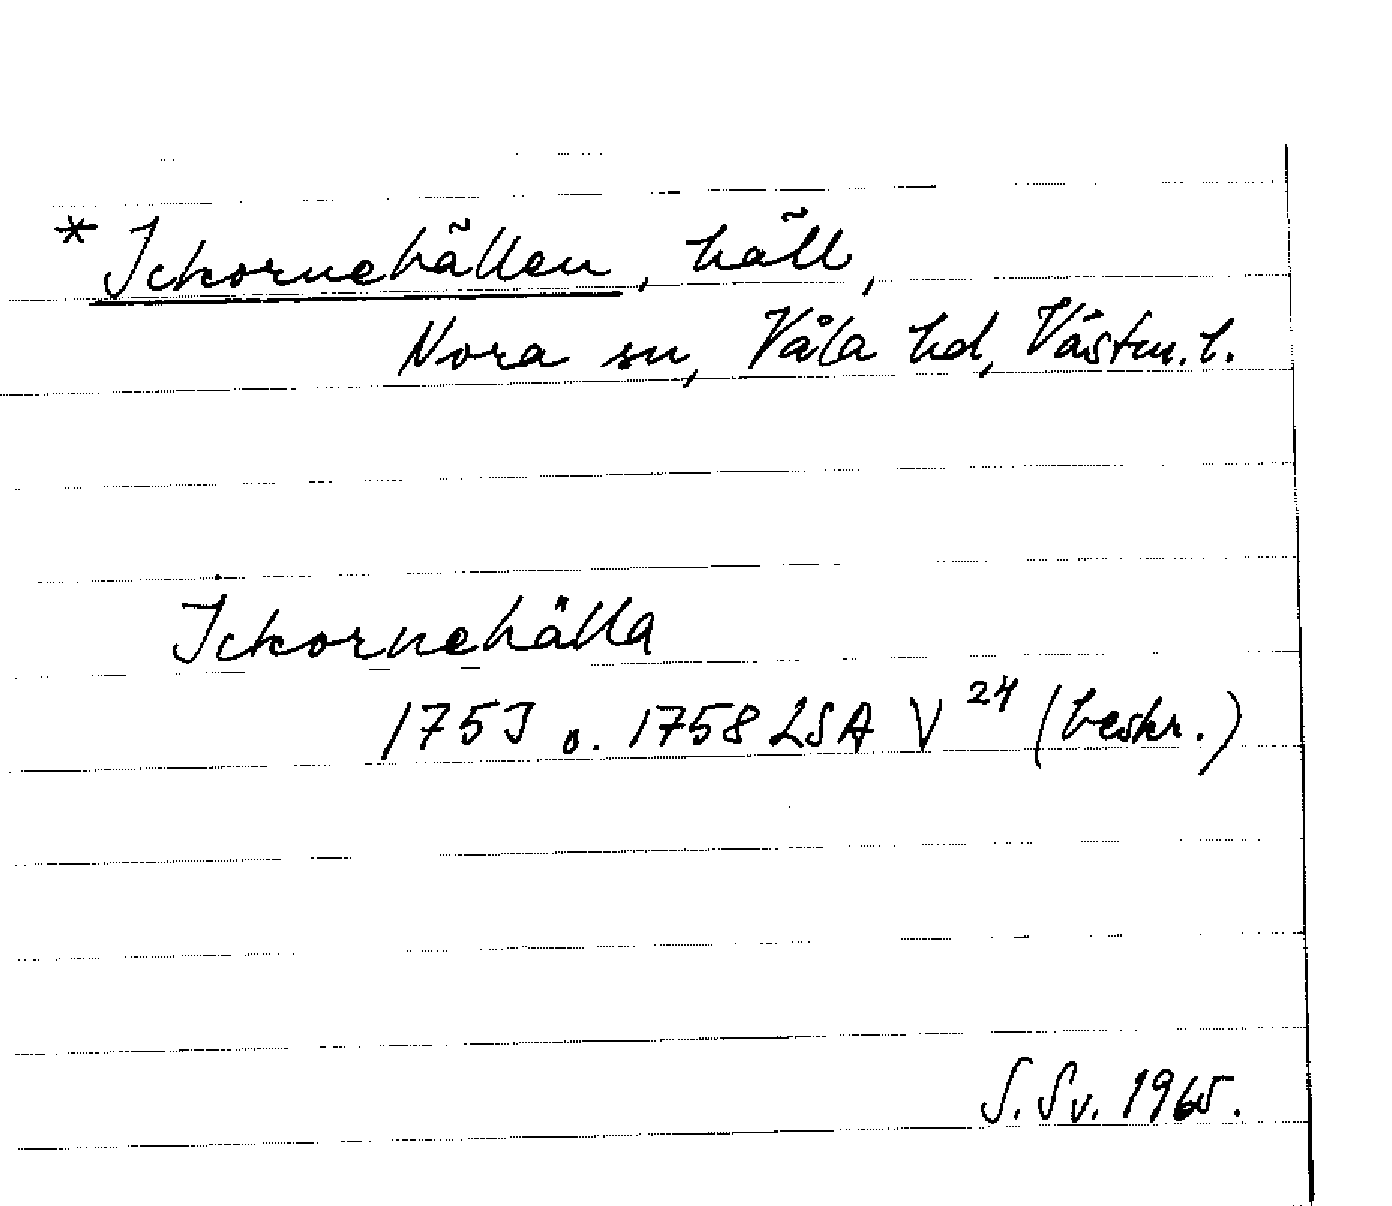 * Ickornehällen, häll,
Nora sn, Våla hd, Västm. l.
Ickornehälla
1753 o. 1758 LSA V 24 (beskr.)
S. Sv. 1965.